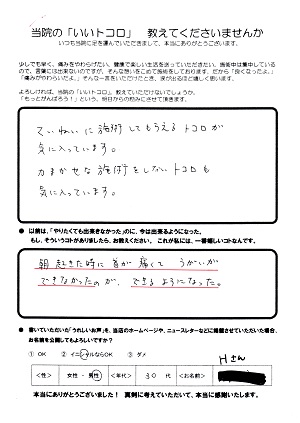 当院の「いいトコロ」 教えてくださいませんか
いつも当院に足を運んでいただきまして、本当にありがとうございます。
少しでも早く、痛みをやわらげたい、健康で楽しい生活を送っていただきたい。施術中は集中している
ので、言葉には出来ないのですが、そんな想いをこめて施術をしております。だから「良くなったよ。」
「痛みがやわらいだよ。」そんな一言をいただけたとき、涙が出るほど嬉しく思います。
よろしければ、当院の「いいトコロ」教えていただけないでしょうか。
「もっとがんばろう！」という、明日からの励みにさせて頂きます。
ていねいに施術してもらえるトコロが
気に入っています。
力まかせな施術をしないトコロも
気に入っています。
● 以前は、「やりたくても出来きなかった」のに、今は出来るようになった。
もし、そういうコトがありましたら、お教えください。 これが私には、一番嬉しいコトなんです。
朝起きた時に首が痛くて うがいが
できなかったのが、できるようになった。
● 書いていただいた「うれしいお声」を、当店のホームページや、ニュースレターなどに掲載させていただいた場合、
お名前を公開してもよろしいですか？
① OK ② イニシャルならOK ③ ダメ
Hさん
＜性＞ 女性 ・ 男性 ＜年代＞ 30 代 ＜お名前＞
本当にありがとうございました！ 真剣に考えていただいて、本当に感謝いたします。